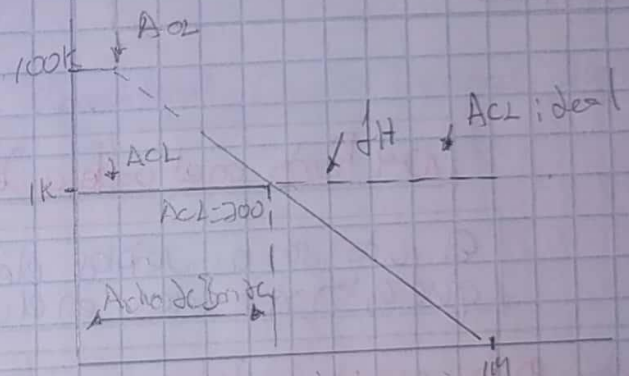 AOL
100K
fH
ACL ideal
ACL
1K
ACL=200
Ancho de Banda
1M